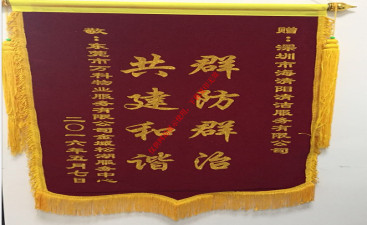 赠:深圳市海清阳清洁服务有限公司
群防群治
共建和谐
敬:东莞市万科物业服务有限公司金域松湖服务中心
二〇一六年五月七日